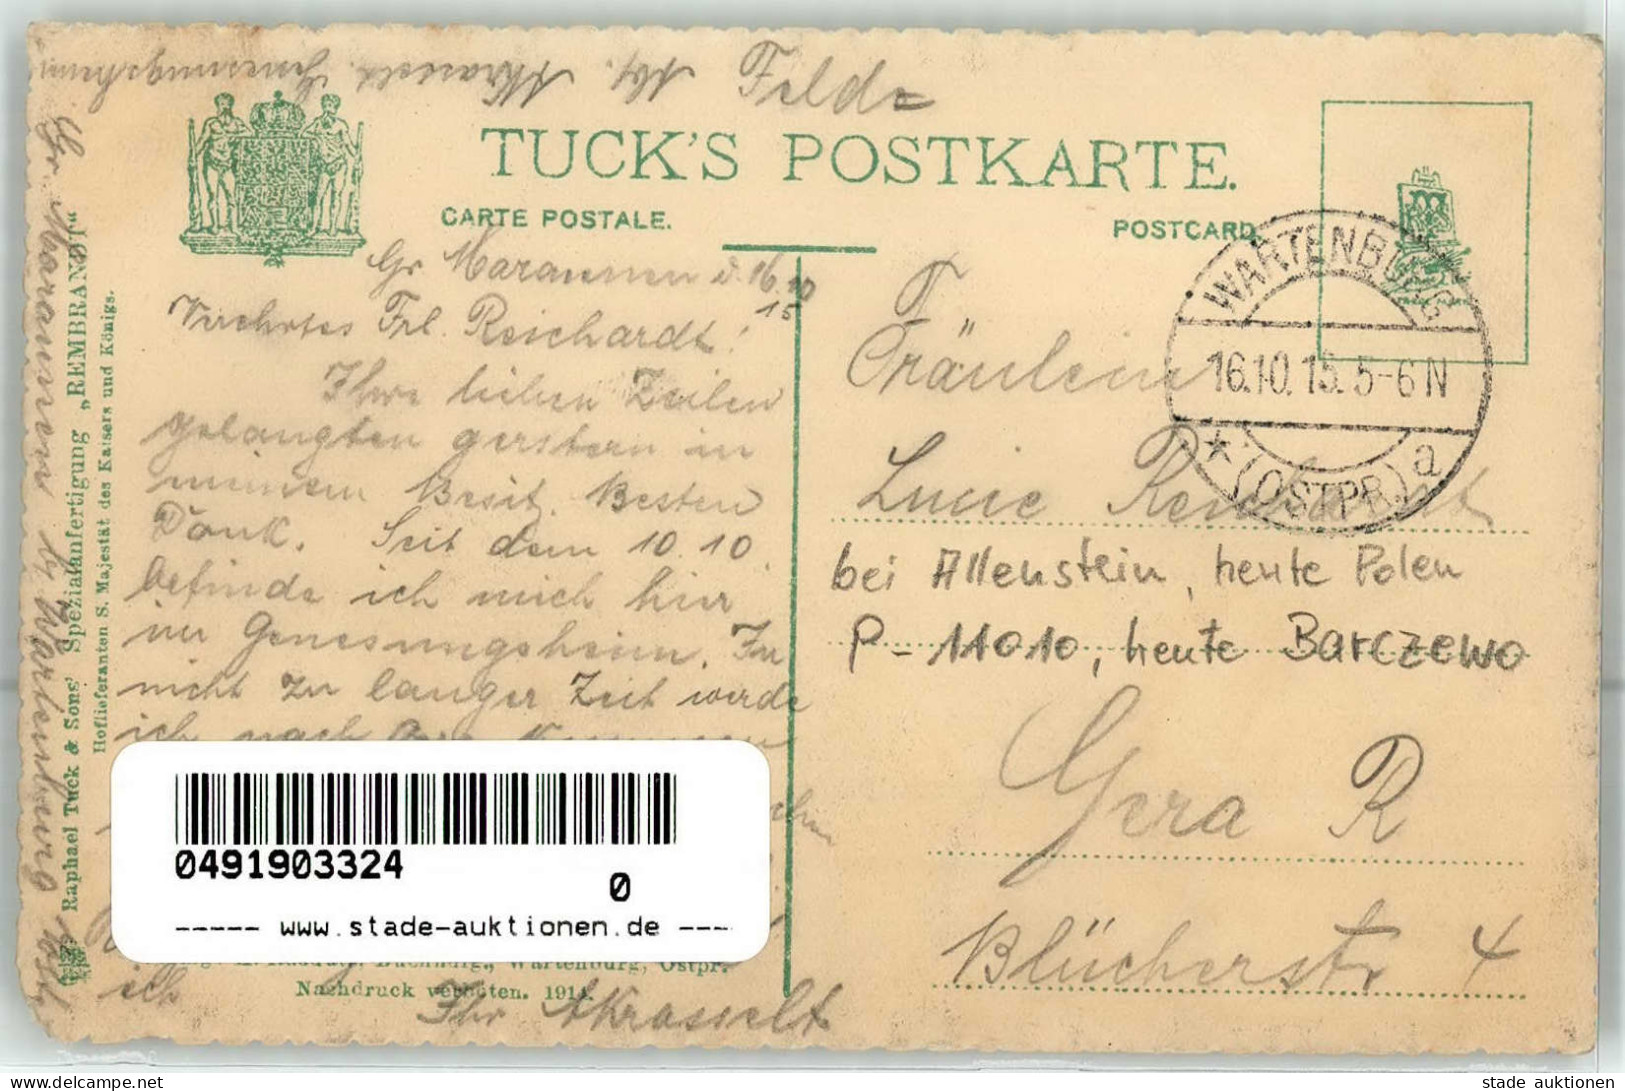 Abs. Krasselt. Genesungsheim
Feld=
TUCK'S POSTKARTE.
CARTE POSTALE.
POSTCARD
WARTENBURG
16.10.15. 5-6 N
* (OSTPR.) a
Gr Maraunen d. 16.10
15
Verehrtes Frl. Reichardt!
Ihre lieben Zeilen
gelangten gerstern in
meinem Besit. Besten
Dank. Seit dem 10.10.
befinde ich mich hier
im Genesungsheim. In
nicht zu langer Zeit werde
ich nach
ich
Ihr AKrasselt
F
Fräulein
Lucie Reichardt
bei Allenstein, heute Polen
P-11010, heute Barczewo
Gera R
Blücherstr 4
Gr Maraunen b/ Wartenburg Ostpr.
Raphael Tuck & Sons' Spezialanfertigung „REMBRANDT“
Hoflieferanten S. Majestät des Kaisers und Königs.
Buchhdlg., Wartenburg, Ostpr.
Nachdruck verboten. 1914.
0491903324
0
----- www.stade-auktionen.de ---
stade auktionen
stade auktionen